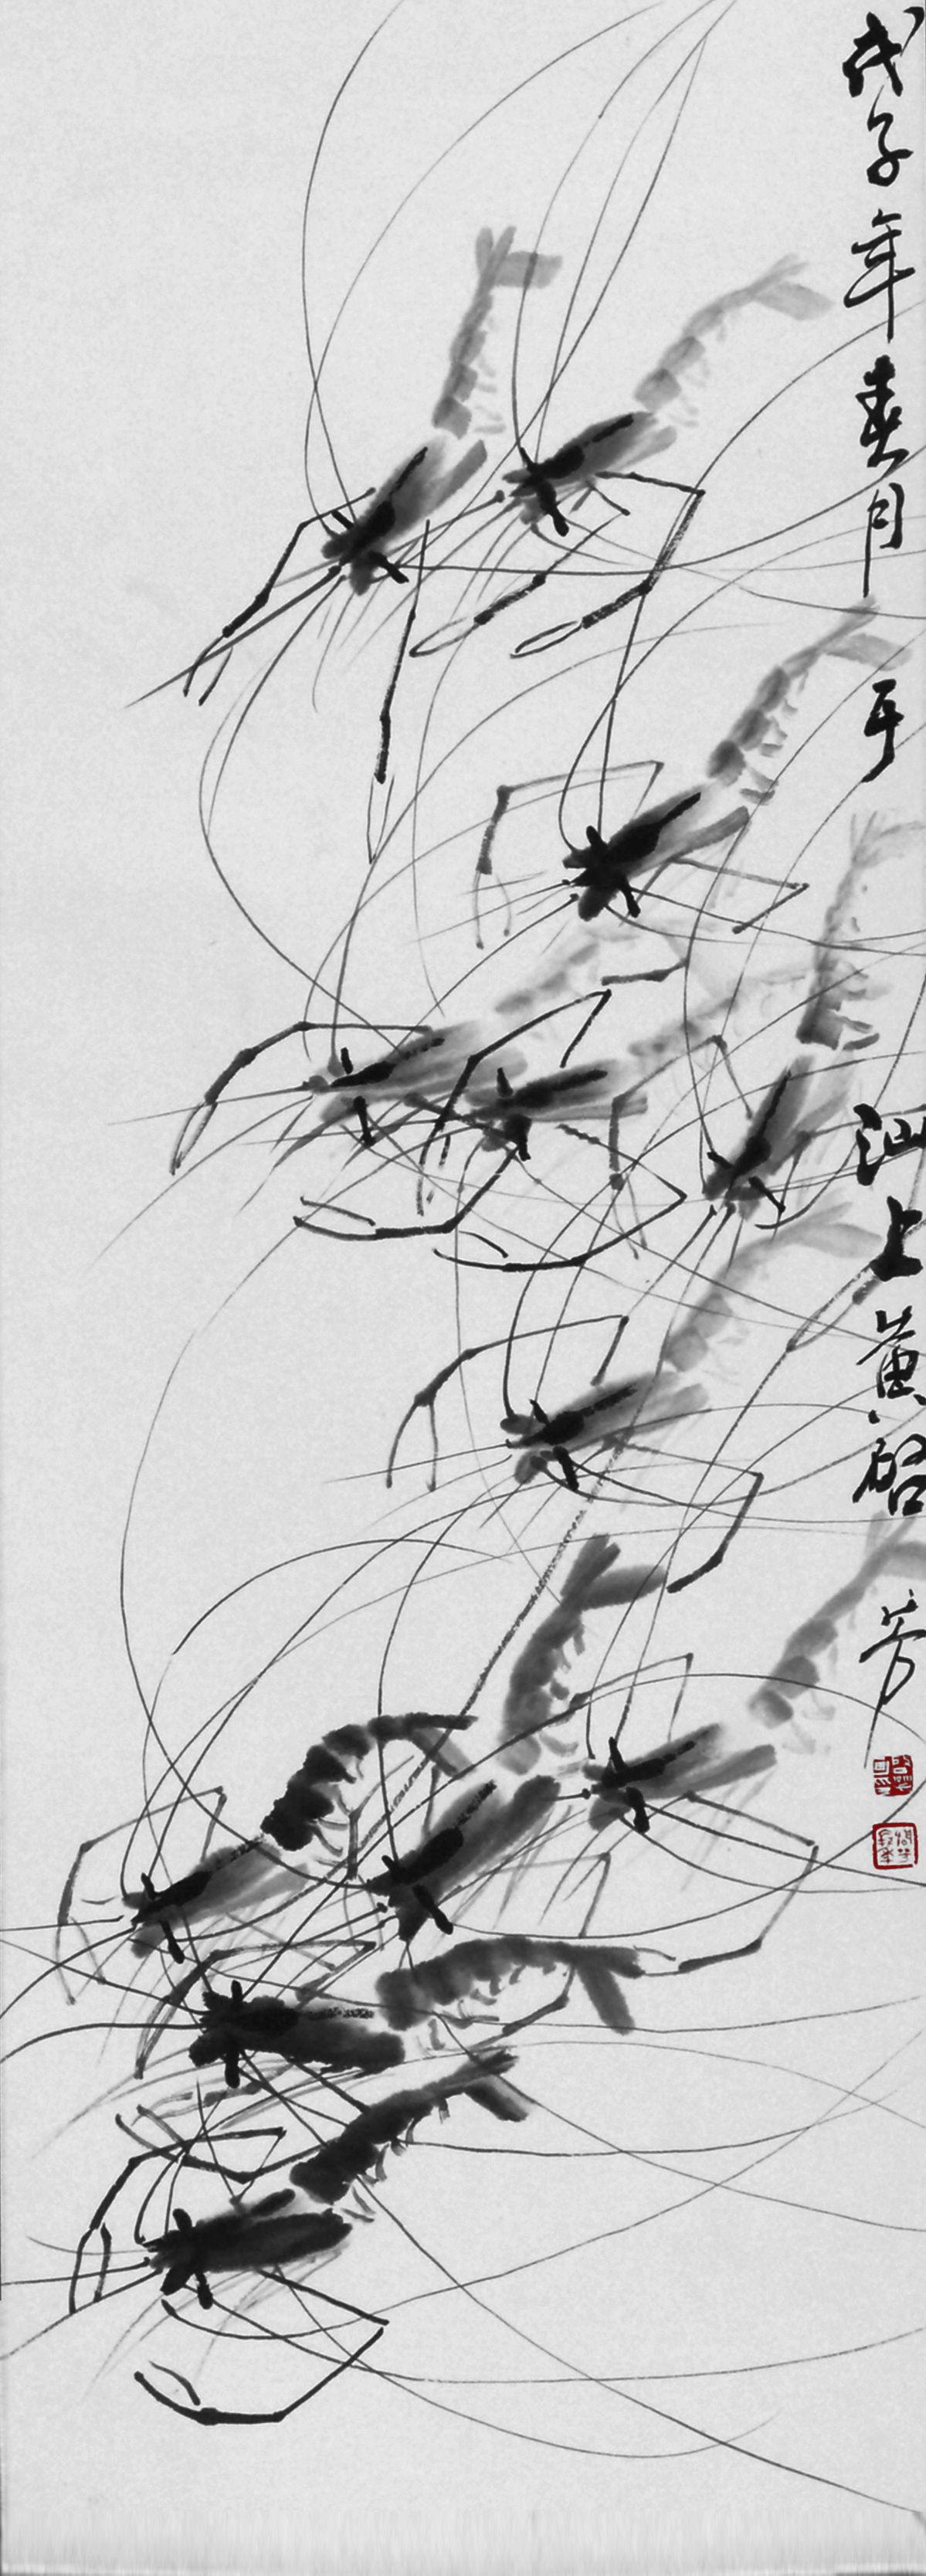 戊子年春月于汕上黄啓芳